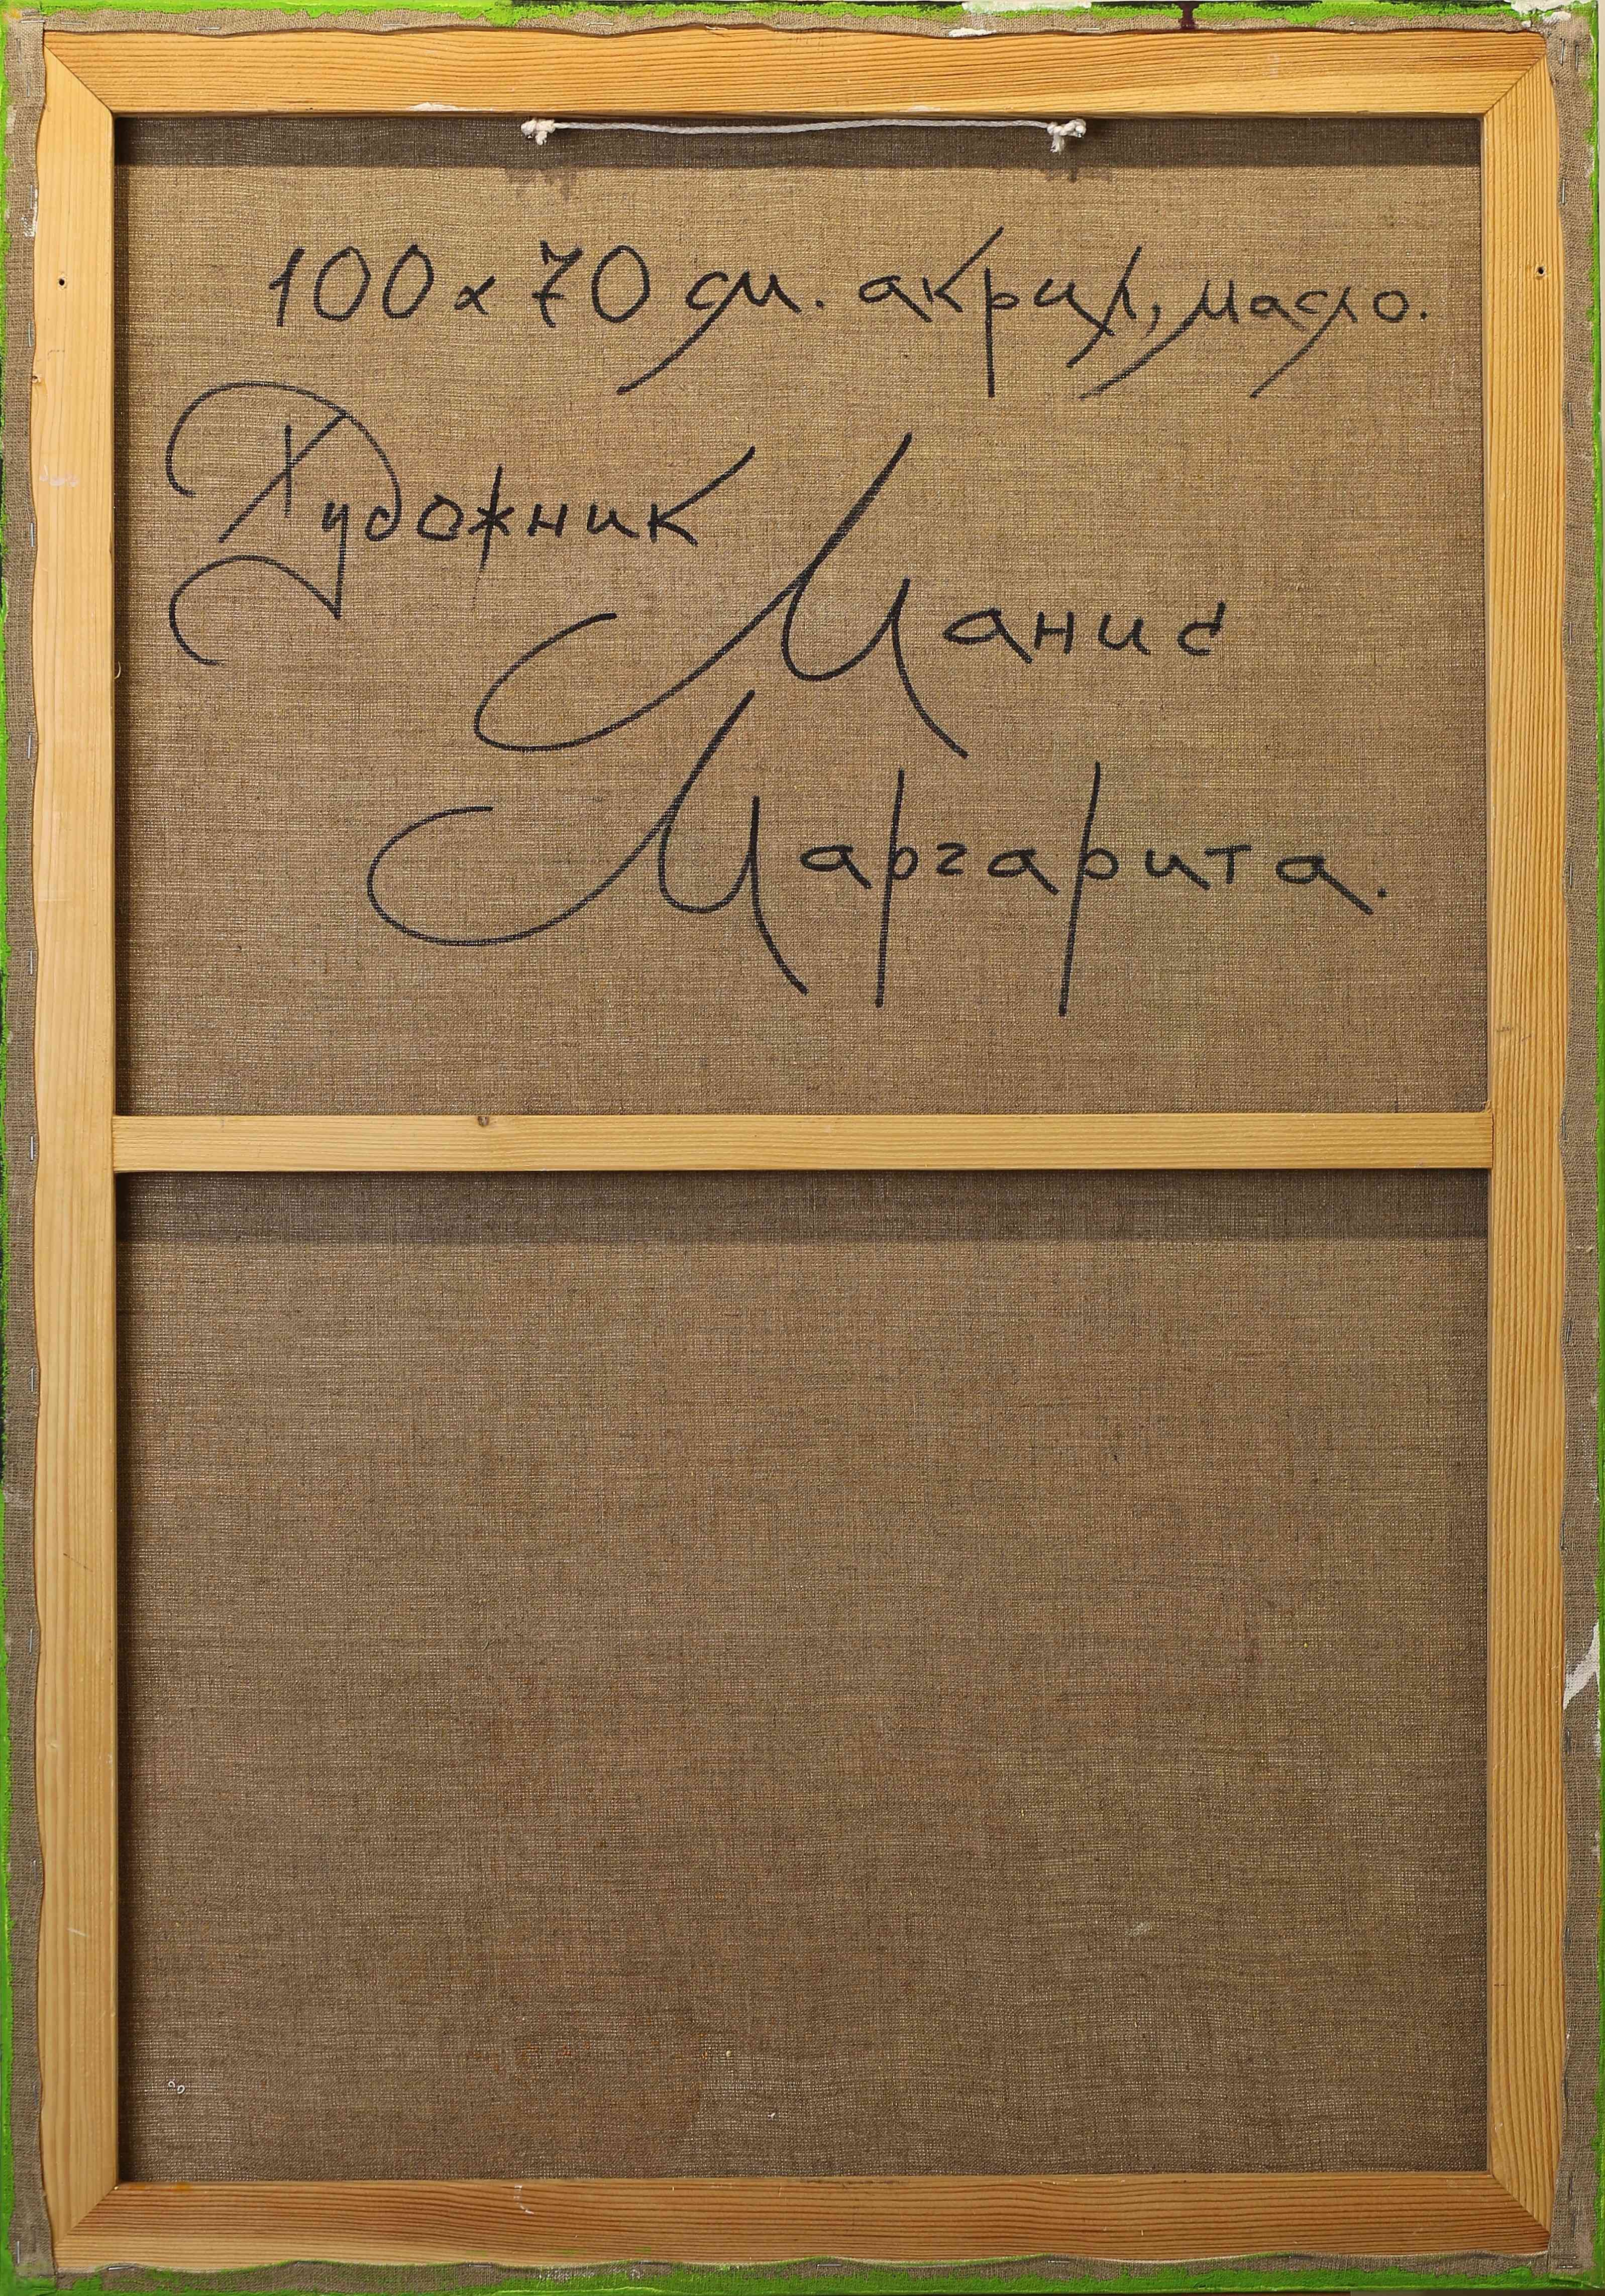 100 x 70 см. акрил, масло.
Художник
Манис
Маргарита.